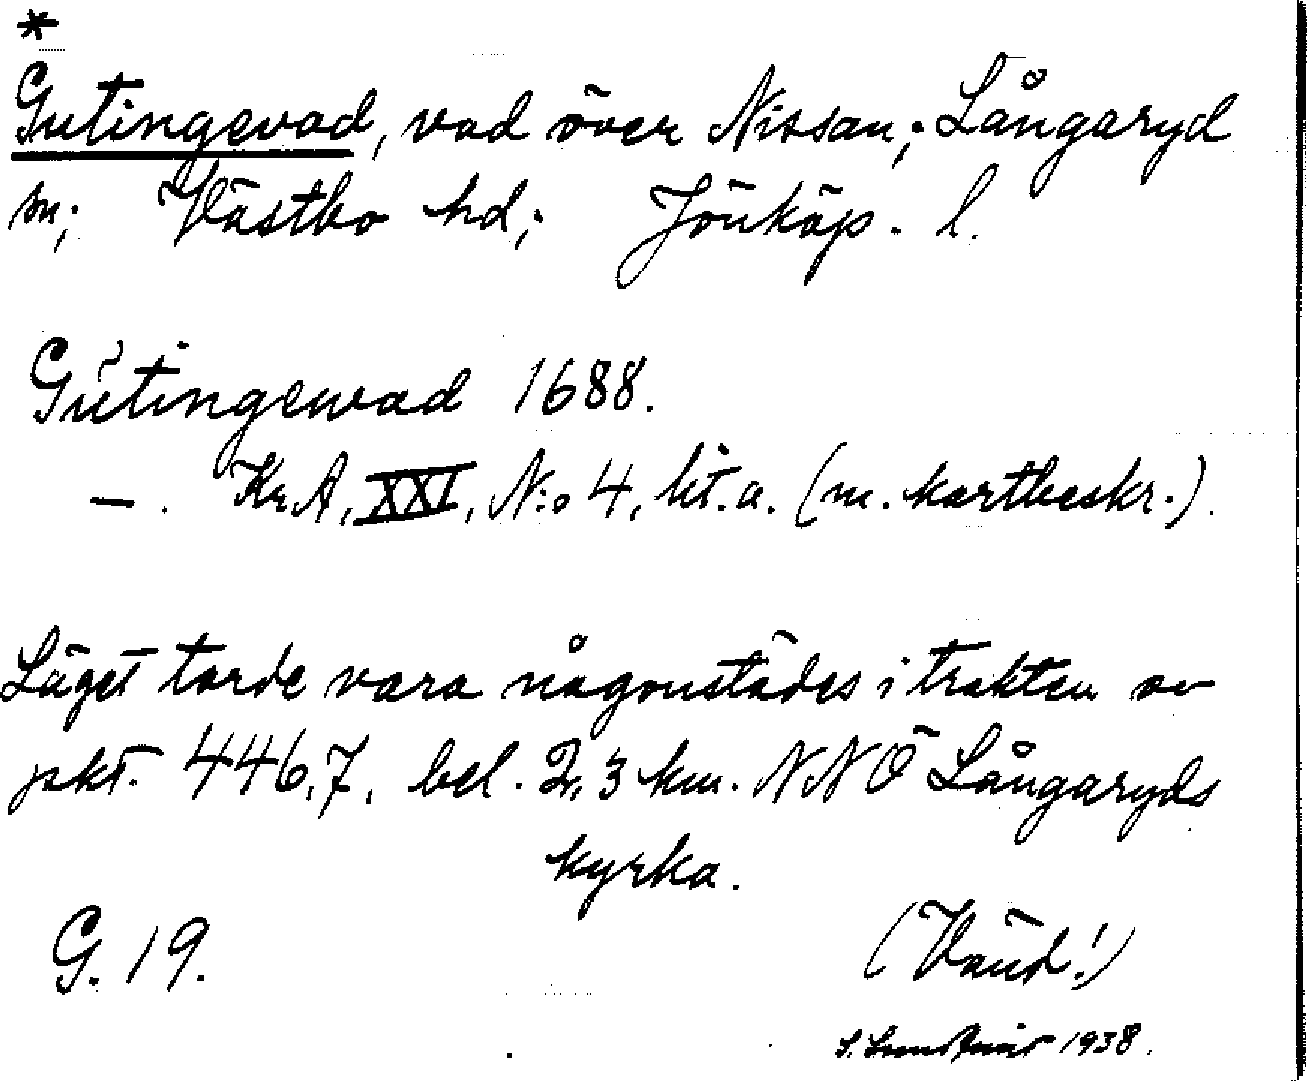 *
Gutingevad, vad över Nissan; Långaryd
sn; Västbo hd; Jönköp. l.
Gütingewad 1688.
—. Kr.A, XXI, N:o 4, lit. a. (m. kartbeskr.).
Läget torde vara någonstädes i trakten av
pkt. 446,7, bel. 2,3 km. NNÖ Långaryds
kyrka.
G. 19.
(Vänd!)
S. 1938.